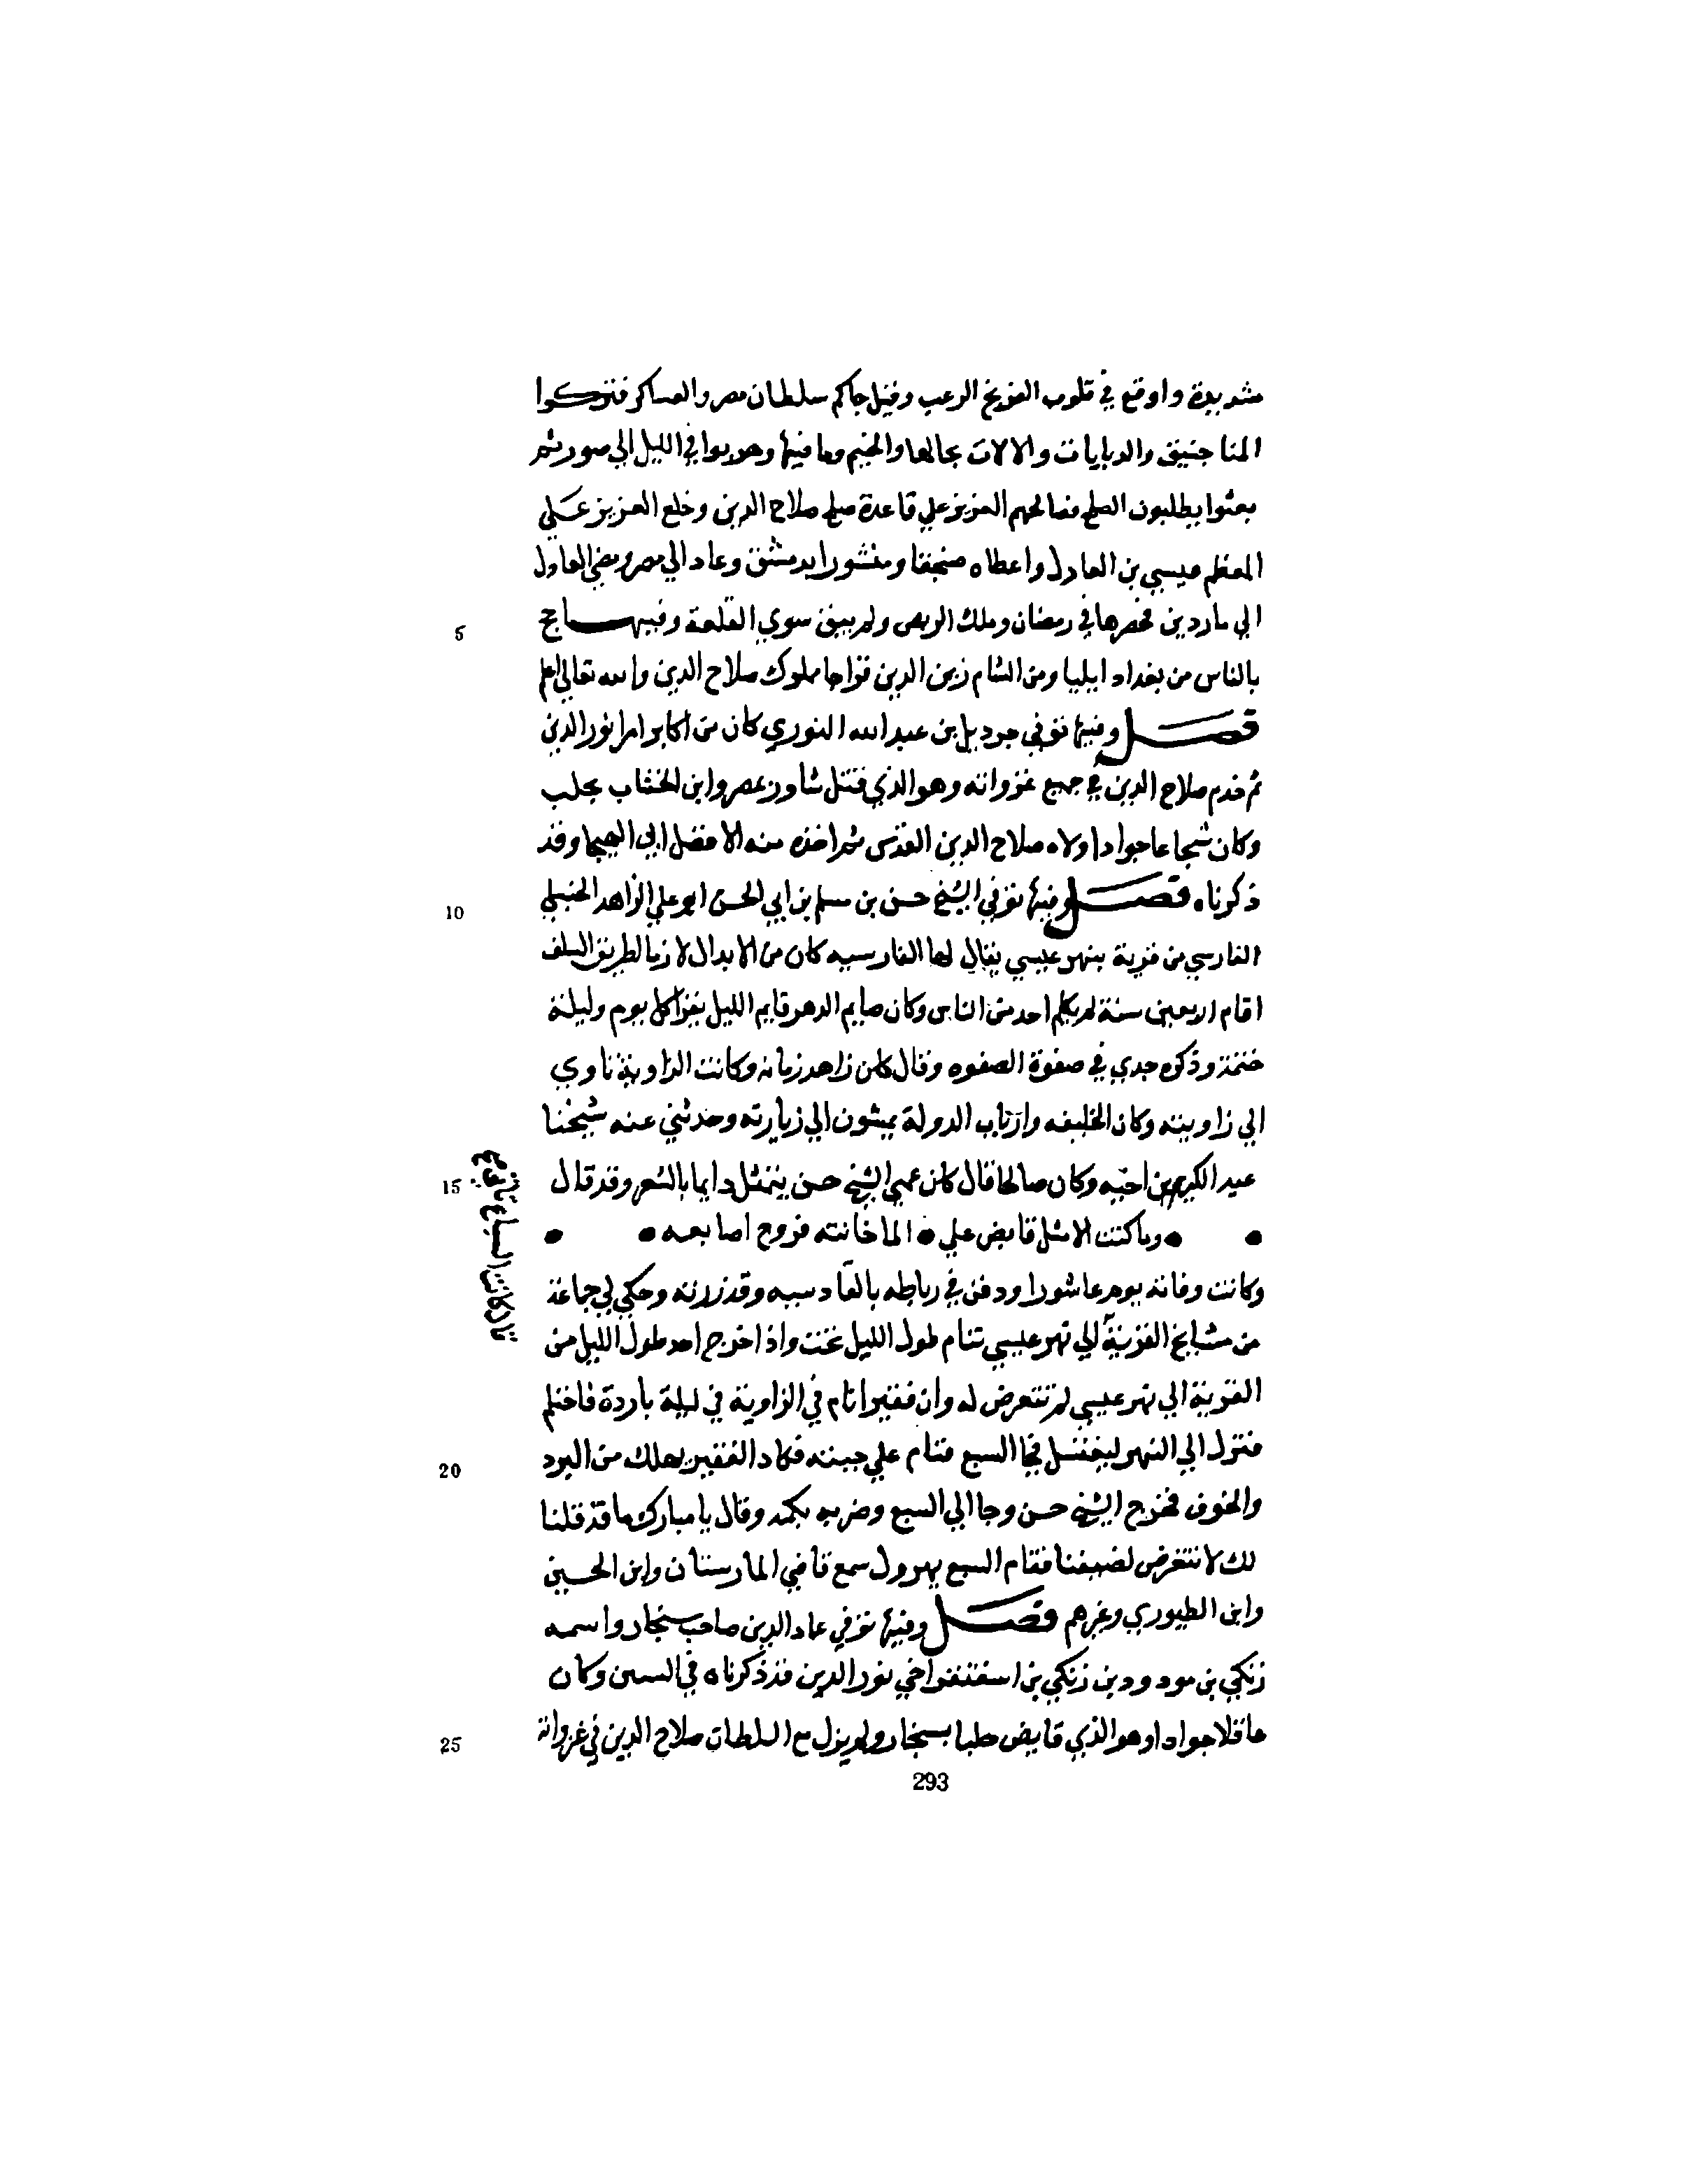 شديدة واوقع في قلوب الفرنج الرعب وقيل جاكم سلطان مصر والعساكر فتركوا
المناجنيق والدبابات والالات بحالها والخيم وما فيها وهربوا في الليل الي صور ثم
بعثوا يطلبون الصلح فصالحهم العزيز علي قاعدة صلح صلاح الدين وخلع العزيز علي
المعظم عيسي بن العادل واعطاه صنجقا ومنشورا بدمشق وعاد الي مصر ومضي العادل
الي ماردين فحصرها في رمضان وملك الربض ولم يبق سوي القلعة وفيها حج
بالناس من بغداد ايليا ومن الشام زين الدين قراجا مملوك صلاح الدين والله تعالي اعلم
فصل وفيها توفي جرديل بن عبد الله النوري كان من اكابر امرا نور الدين
ثم خدم صلاح الدين في جميع غزواته وهو الذي قتل شاور بمصر وابن الخشاب بحلب
وكان شجاعا جوادا ولاه صلاح الدين القدس ثم اخذه منه الافضل ابي الهيجا وقد
ذكرناه فصل وفيها توفي الشيخ حسن بن مسلم بن ابي الحسن ابو علي الزاهد الحنبلي
الفارسي من قرية بنهر عيسي يقال لها الفارسيه كان من الابدال لازما لطريق السلف
اقام اربعين سنة لم يكلم احد من الناس وكان صايم الدهر قايم الليل يقرا كل يوم وليلة
ختمة وذكره جدي في صفوة الصفوه وقال كان زاهد زمانه وكانت الزاوية تاوي
الي زاويته وكان الخليفه وارباب الدولة يمشون الي زيارته وحدثني عنه شيخنا
عبد الكريم بن اخيه وكان صالحا قال كان عمي الشيخ حسن يتمثل دايما بالشعر وقد قال
• • وما كنت الا مثل قابض علي • الما خانته فروج اصابعه • •
وكانت وفاته يوم عاشورا ودفن في رباطه بالقادسيه وقد زرته وحكي لي جماعة
من مشايخ القرية الي نهر عيسي تنام طول الليل تحت واذا خرج احد طول الليل من
القرية الي نهر عيسي لم تتعرض له وان فقيرا نام في الزاوية في ليلة باردة فاحتلم
فنزل الي النهر ليغتسل فجا السبع فنام علي جبته فكاد الفقير يهلك من البرد
والخوف فخرج الشيخ حسن وجا الي السبع وضربه بكمه وقال يا مبارك ما قد قلنا
لك لا تتعرض لضيفنا فقام السبع يهرول سمع قاضي المارستان وابن الحسين
وابن الطيوري وغيرهم فصل وفيها توفي عماد الدين صاحب سنجار واسمه
زنكي بن مودود بن زنكي بن اسقنقر اخي نور الدين قد ذكرناه في السنين وكان
عاقلا جوادا وهو الذي قايض حلبا بسنجار ولم يزل مع السلطان صلاح الدين في غزواته
5
10
15
20
25
293